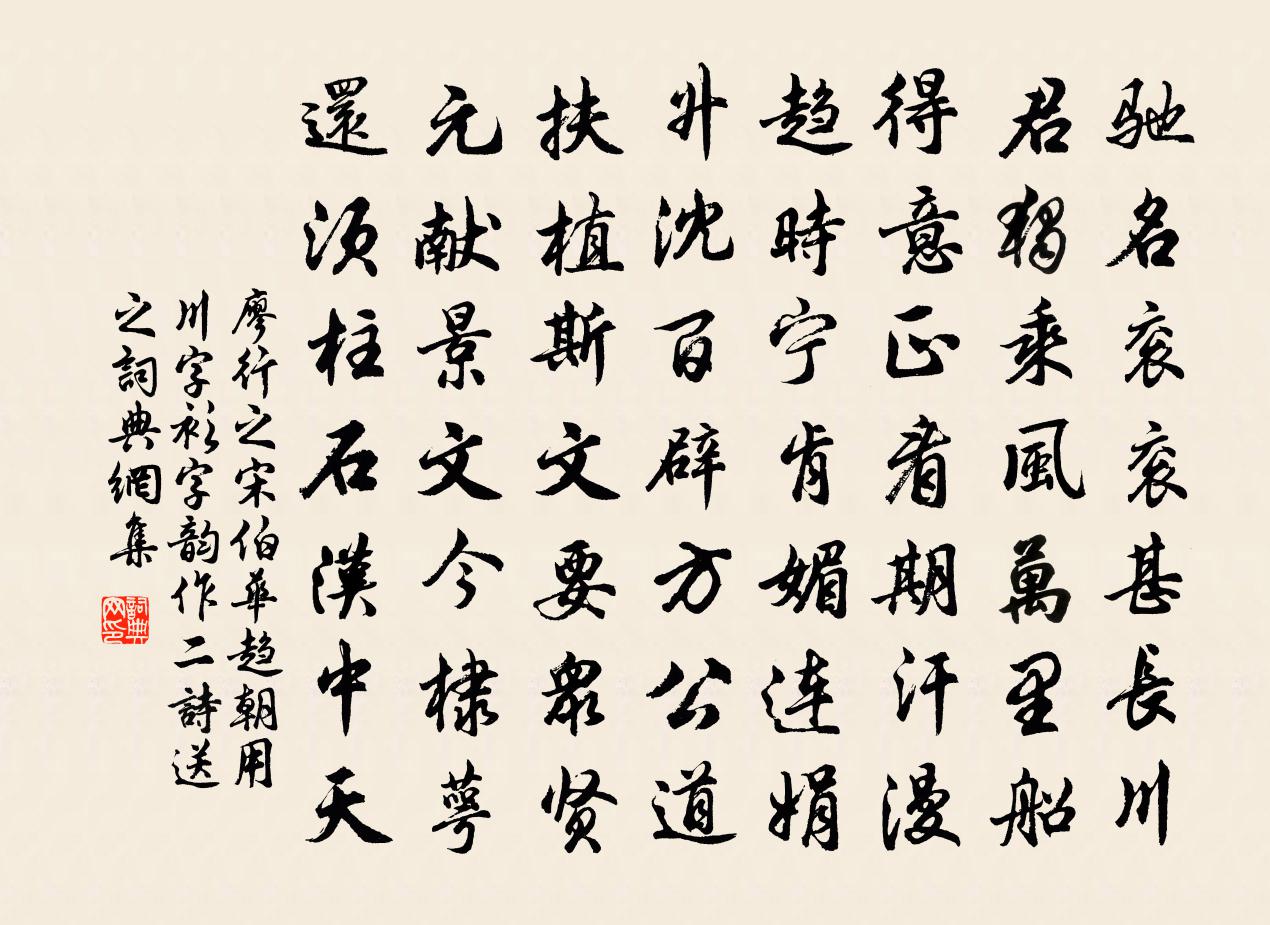 驰名衮衮甚長川
君獨乘風萬里船
得意正看期汗漫
趋時宁肯媚连娟
升沈百辟方公道
扶植斯文要眾贤
元献景文今棣萼
還須柱石漢中天
廖行之宋伯華趋朝用
川字衫字韵作二詩送
之詞典網集
詞典网印